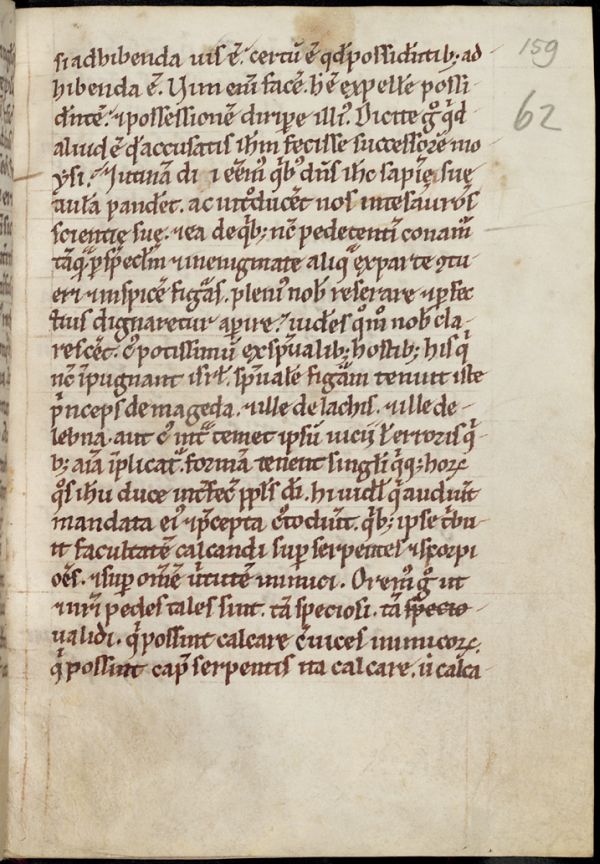 si adhibenda uis ē. certū ē qd̄ possidentib; ad
hibenda ē. Vim em̄ facē. h̄ ē expellē possi
dentē. ⁊ possessionē diripe illi᾽. Dicite g̊ q̄d
aliud ē q̄d accusatis ih̄m fecisse successorē mo
ysi.
159
62
aulā pandet. ac introducet nos in tesauros
scientię suę. ⁊ ea de q̄b; nc̄ pedetentī conam̄
tāq̄ p specl̄m ⁊ in enigmate
eri ⁊ inspicē figas. pleni᾽ nob̄ reserare ⁊ pfec
tius dignaretur apire.
rescet. potissimū ex spūalib; hostib; his q̄
nc̄ īpugnant isrl̄. spūalē figam tenuit iste
p̄nceps de mageda. ⁊ ille de lachis. ⁊ ille de
lebna. aut temet ipsū uicii l̄ erroris q̄
b; aīa īplicat. formā tenent singl̄i q̄q; horꝝ
q̊s ih̄u duce int̄fec ppl̄s dī. hi uidl̄ q̄ audiunt
mandata ei᾽ ⁊ p̄cepta c᾽todiunt. q̄b; ipse t̄bu
it facultatē calcandi sup serpentes ⁊ scorpi
oēs. ⁊ sup om̄ē ūtutē inimici. Orem᾽ g̊ ut
⁊ nr̄i pedes tales sint. tā speciosi. tā specio
ualidi. q̄ possint calcare c̄uices inimicoꝝ.
q̄ possint cap̄ serpentis ita calcare. ū calca